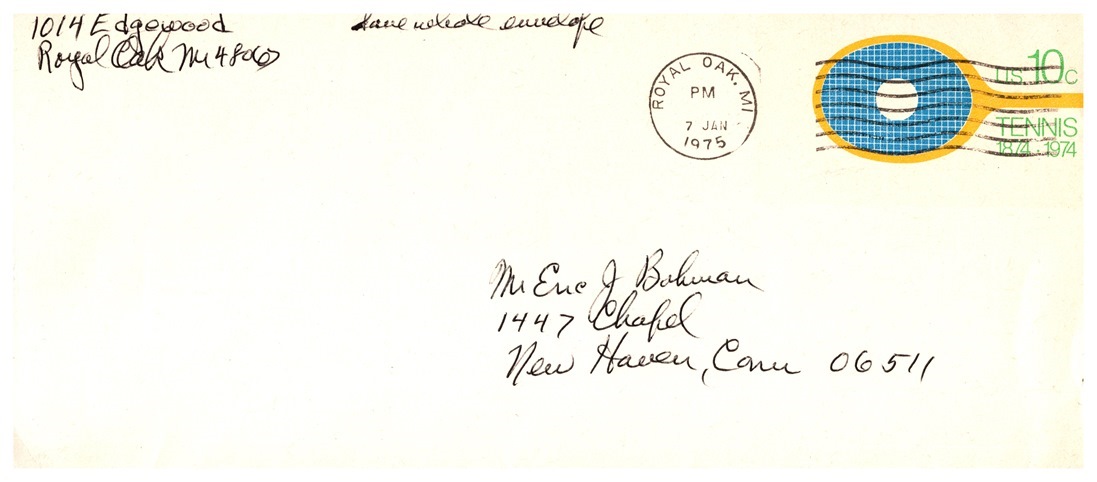 1014 Edgewood
Royal Oak Mi 48067
Save whole envelope
ROYAL OAK, MI
PM
7 JAN
1975
U.S. 10c
TENNIS
1874-1974
Mr Eric J Bohman
1447 Chapel
New Haven, Conn 06511